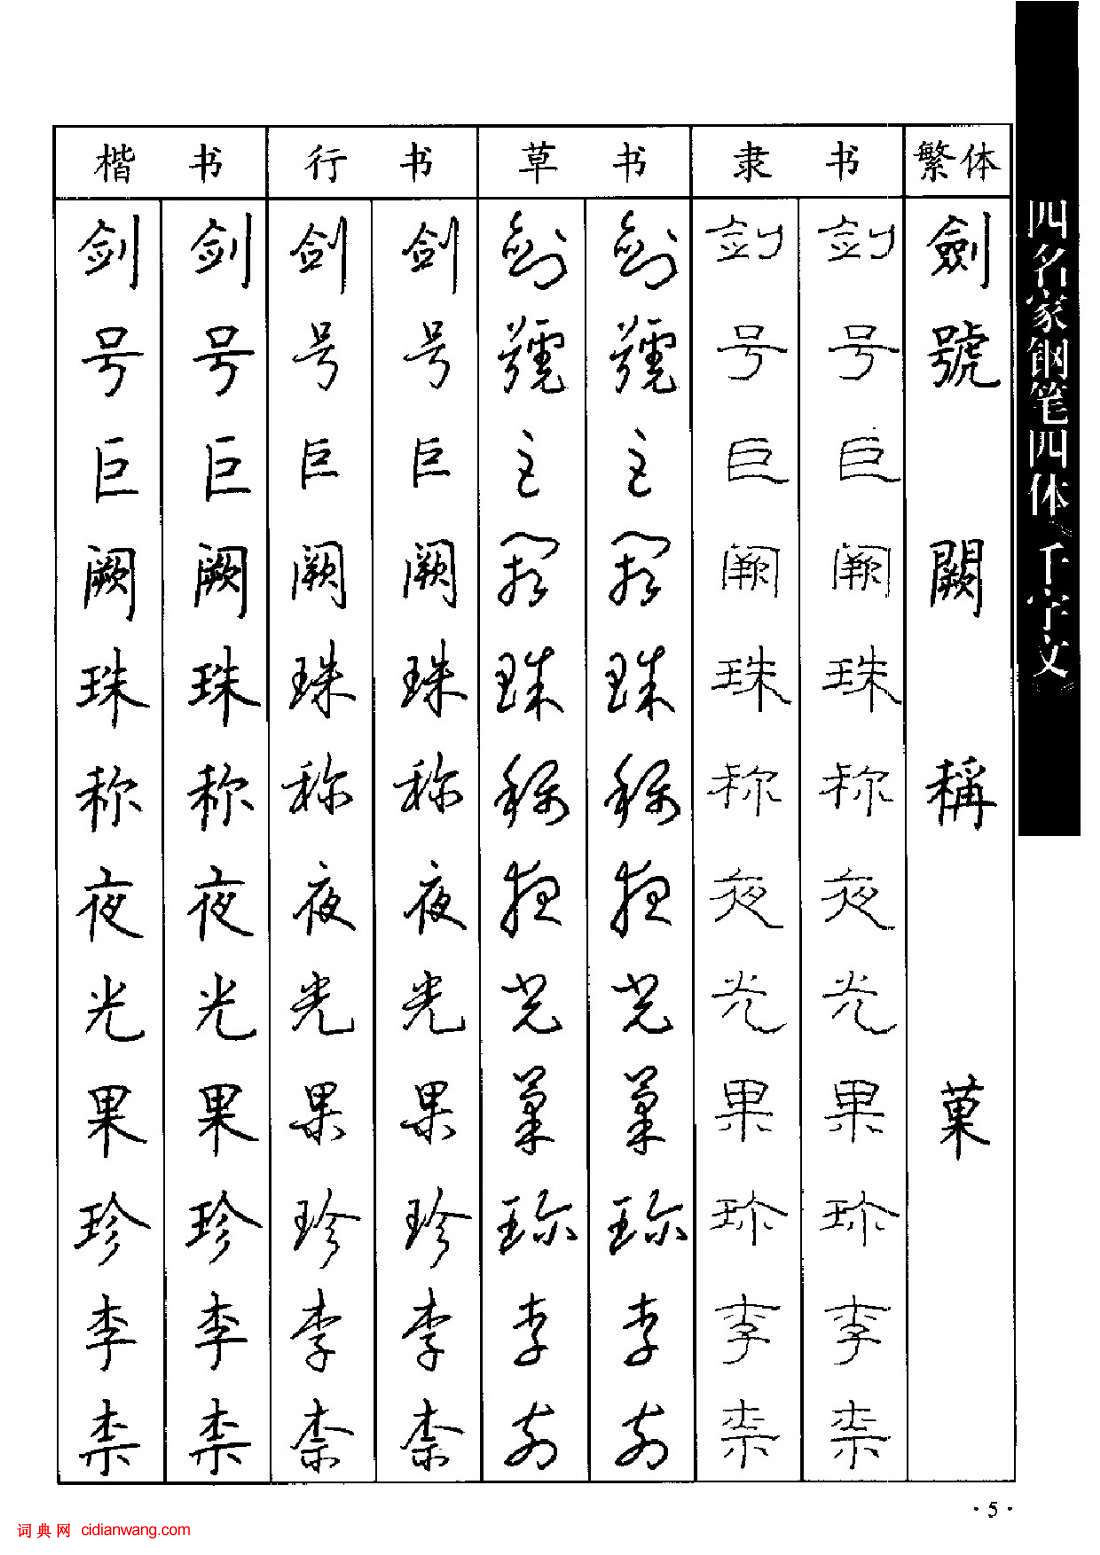 楷书 行书 草书 隶书 繁体
剑 剑 剑 剑 剑 剑 剑 剑 劍
号 号 号 号 號 號 号 号 號
巨 巨 巨 巨 巨 巨 巨 巨
阙 阙 阙 阙 阙 阙 阙 阙 闕
珠 珠 珠 珠 珠 珠 珠 珠
称 称 称 称 称 称 称 称 稱
夜 夜 夜 夜 夜 夜 夜 夜
光 光 光 光 光 光 光 光
果 果 果 果 菓 菓 果 果 菓
珍 珍 珍 珍 珎 珎 珎 珎
李 李 李 李 李 李 李 李
柰 柰 柰 柰 柰 柰 柰 柰
四名家钢笔四体《千字文》
·5·
词典网 cidianwang.com